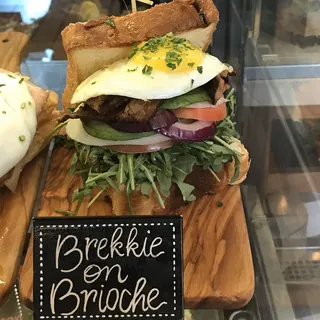 Brekkie
on
Brioche